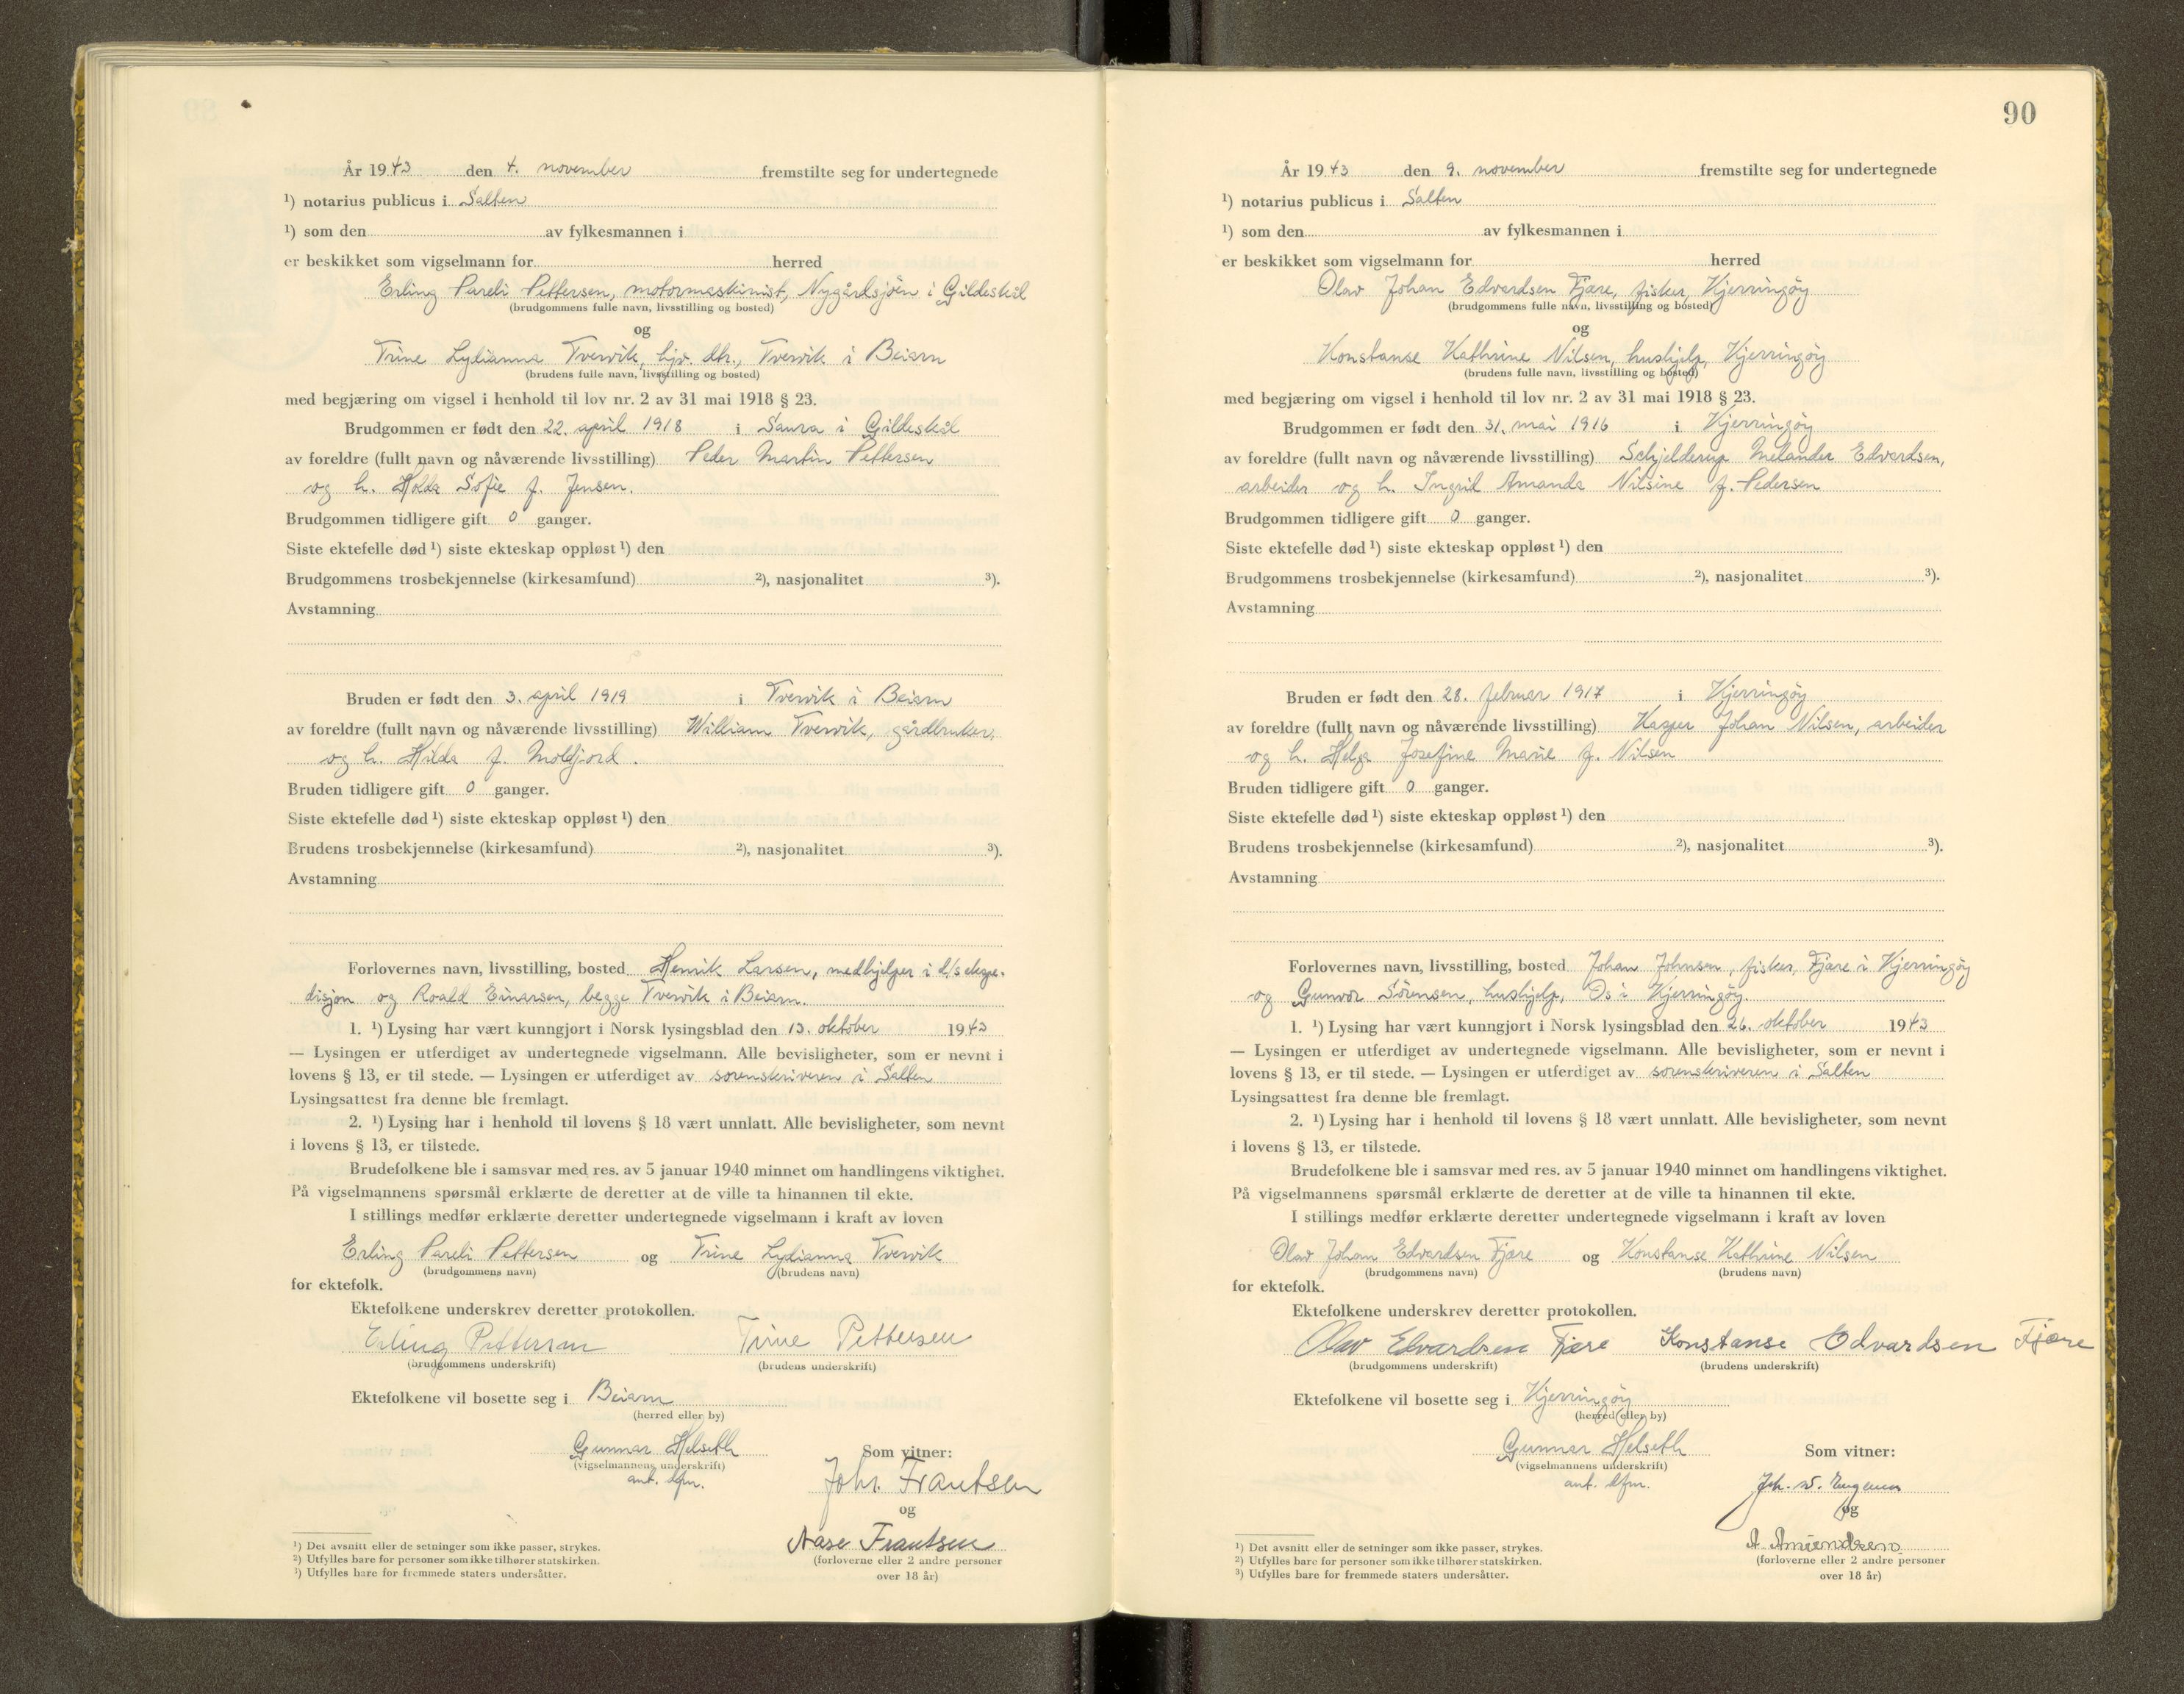 År 1943 den 4. november fremstilte seg for undertegnede
¹) notarius publicus i Salten
¹) som den av fylkesmannen i
er beskikket som vigselmann for herred
Erling Pareli Pettersen, motormaskinist, Nygårdsjöen i Gildeskål
(brudgommens fulle navn, livsstilling og bosted)
og
Trine Lydianna Tvervik, hjv. dtr., Tvervik i Beiarn
(brudens fulle navn, livsstilling og bosted)
med begjæring om vigsel i henhold til lov nr. 2 av 31 mai 1918 § 23.
Brudgommen er født den 22. april 1918 i Saura i Gildeskål
av foreldre (fullt navn og nåværende livsstilling) Peder Martin Pettersen
og h. Holda Sofie f. Jensen.
Brudgommen tidligere gift 0 ganger.
Siste ektefelle død ¹) siste ekteskap oppløst ¹) den
Brudgommens trosbekjennelse (kirkesamfund) ²), nasjonalitet ³).
Avstamning
Bruden er født den 3. april 1919 i Tvervik i Beiarn
av foreldre (fullt navn og nåværende livsstilling) William Tvervik, gårdbruker,
og h. Hilda f. Moldjord.
Bruden tidligere gift 0 ganger.
Siste ektefelle død ¹) siste ekteskap oppløst ¹) den
Brudens trosbekjennelse (kirkesamfund) ²), nasjonalitet ³).
Avstamning
Forlovernes navn, livsstilling, bosted Henrik Larsen, medhjelper i d/s ekspe-
disjon og Roald Einarsen, begge Tvervik i Beiarn.
1. ¹) Lysing har vært kunngjort i Norsk lysingsblad den 13. oktober 1943
— Lysingen er utferdiget av undertegnede vigselmann. Alle bevisligheter, som er nevnt i
lovens § 13, er til stede. — Lysingen er utferdiget av sorenskriveren i Salten
Lysingsattest fra denne ble fremlagt.
2. ¹) Lysing har i henhold til lovens § 18 vært unnlatt. Alle bevisligheter, som nevnt
i lovens § 13, er tilstede.
Brudefolkene ble i samsvar med res. av 5 januar 1940 minnet om handlingens viktighet.
På vigselmannens spørsmål erklærte de deretter at de ville ta hinannen til ekte.
I stillings medfør erklærte deretter undertegnede vigselmann i kraft av loven
Erling Pareli Pettersen og Trine Lydianna Tvervik
(brudgommens navn) (brudens navn)
for ektefolk.
Ektefolkene underskrev deretter protokollen.
Erling Pettersen Trine Pettersen
(brudgommens underskrift) (brudens underskrift)
Ektefolkene vil bosette seg i Beiarn
(herred eller by)
Gunnar Helseth Som vitner:
(vigselmannens underskrift)
aut. dfm. Joh. Frantsen
og
Aase Frantsen
(forloverne eller 2 andre personer
over 18 år)
¹) Det avsnitt eller de setninger som ikke passer, strykes.
²) Utfylles bare for personer som ikke tilhører statskirken.
³) Utfylles bare for fremmede staters undersåtter.
90
År 1943 den 9. november fremstilte seg for undertegnede
¹) notarius publicus i Salten
¹) som den av fylkesmannen i
er beskikket som vigselmann for herred
Olav Johan Edvardsen Fjære, fisker, Kjerringöy
(brudgommens fulle navn, livsstilling og bosted)
og
Konstanse Kathrine Nilsen, hushjelp, Kjerringöy
(brudens fulle navn, livsstilling og bosted)
med begjæring om vigsel i henhold til lov nr. 2 av 31 mai 1918 § 23.
Brudgommen er født den 31. mai 1916 i Kjerringöy
av foreldre (fullt navn og nåværende livsstilling) Schjelderup Melander Edvardsen,
arbeider og h. Ingrid Amanda Nilsine f. Pedersen
Brudgommen tidligere gift 0 ganger.
Siste ektefelle død ¹) siste ekteskap oppløst ¹) den
Brudgommens trosbekjennelse (kirkesamfund) ²), nasjonalitet ³).
Avstamning
Bruden er født den 28. februar 1917 i Kjerringöy
av foreldre (fullt navn og nåværende livsstilling) Kasper Johan Nilsen, arbeider
og h. Helga Josefine Marie f. Nilsen
Bruden tidligere gift 0 ganger.
Siste ektefelle død ¹) siste ekteskap oppløst ¹) den
Brudens trosbekjennelse (kirkesamfund) ²), nasjonalitet ³).
Avstamning
Forlovernes navn, livsstilling, bosted Johan Johnsen, fisker, Fjære i Kjerringöy
og Gunvor Sörensen, hushjelp, Os i Kjerringöy
1. ¹) Lysing har vært kunngjort i Norsk lysingsblad den 26. oktober 1943
— Lysingen er utferdiget av undertegnede vigselmann. Alle bevisligheter, som er nevnt i
lovens § 13, er til stede. — Lysingen er utferdiget av sorenskriveren i Salten
Lysingsattest fra denne ble fremlagt.
2. ¹) Lysing har i henhold til lovens § 18 vært unnlatt. Alle bevisligheter, som nevnt
i lovens § 13, er tilstede.
Brudefolkene ble i samsvar med res. av 5 januar 1940 minnet om handlingens viktighet.
På vigselmannens spørsmål erklærte de deretter at de ville ta hinannen til ekte.
I stillings medfør erklærte deretter undertegnede vigselmann i kraft av loven
Olav Johan Edvardsen Fjære og Konstanse Kathrine Nilsen
(brudgommens navn) (brudens navn)
for ektefolk.
Ektefolkene underskrev deretter protokollen.
Olav Edvardsen Fjære Konstanse Edvardsen Fjære
(brudgommens underskrift) (brudens underskrift)
Ektefolkene vil bosette seg i Kjerringöy
(herred eller by)
Gunnar Helseth Som vitner:
(vigselmannens underskrift)
aut. dfm. Joh.
og
A Amundsen
(forloverne eller 2 andre personer
over 18 år)
¹) Det avsnitt eller de setninger som ikke passer, strykes.
²) Utfylles bare for personer som ikke tilhører statskirken.
³) Utfylles bare for fremmede staters undersåtter.